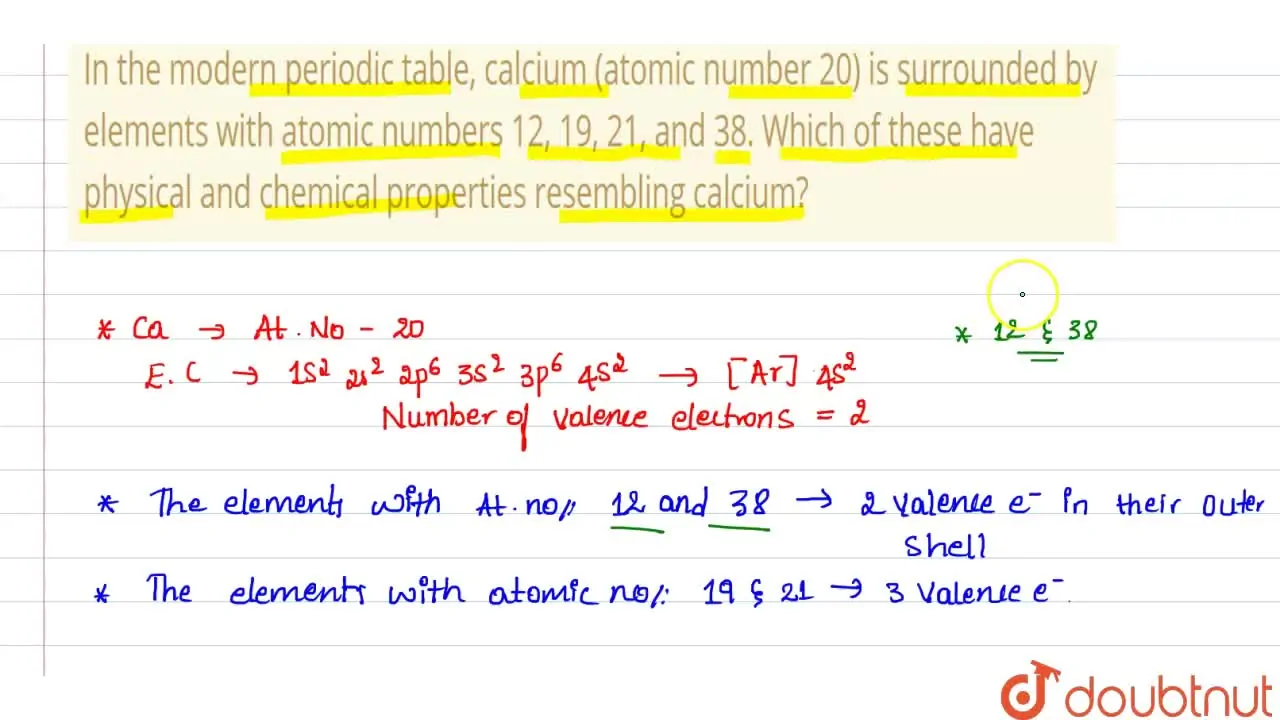 In the modern periodic table, calcium (atomic number 20) is surrounded by
elements with atomic numbers 12, 19, 21, and 38. Which of these have
physical and chemical properties resembling calcium?
* Ca → At. No - 20
* 12 & 38
E. C → 1s² 2s² 2p⁶ 3s² 3p⁶ 4s² → [Ar] 4s²
Number of valence electrons = 2
* The elements with At. no/: 12 and 38 → 2 valence e⁻ in their outer
shell
* The elements with atomic no/: 19 & 21 → 3 valence e⁻.
doubtnut